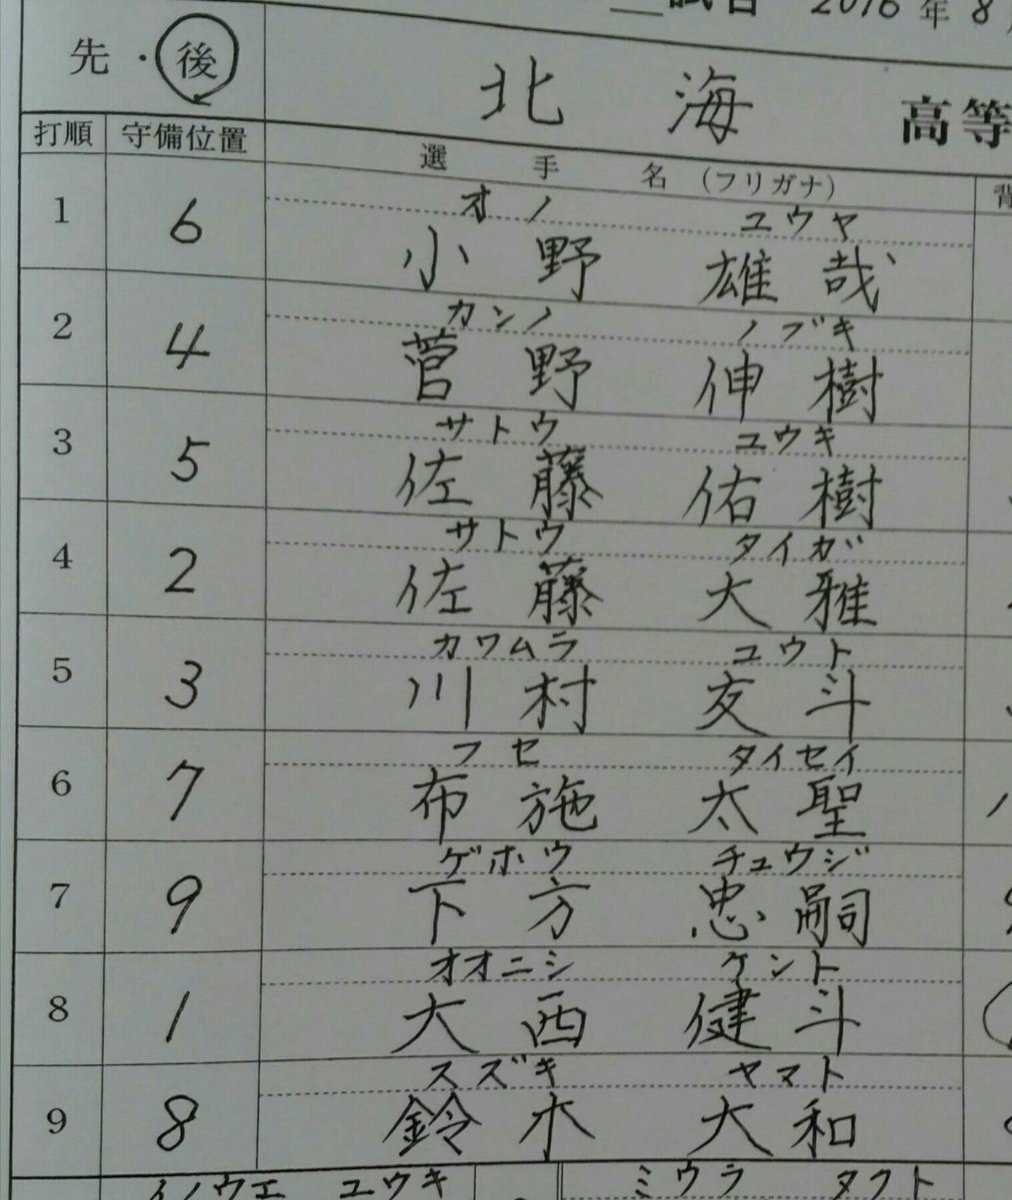 試合 2016年8
先・後 北海 高等
打順 守備位置 選手名(フリガナ)
オノ ユウヤ
1 6 小野 雄哉
カンノ ノブキ
2 4 菅野 伸樹
サトウ ユウキ
3 5 佐藤 佑樹
サトウ タイガ
4 2 佐藤 大雅
カワムラ ユウト
5 3 川村 友斗
フセ タイセイ
6 7 布施 太聖
ゲホウ チュウジ
7 9 下方 忠嗣
オオニシ ケント
8 1 大西 健斗
スズキ ヤマト
9 8 鈴木 大和
イノウエ ユウキ ミウラ タクト